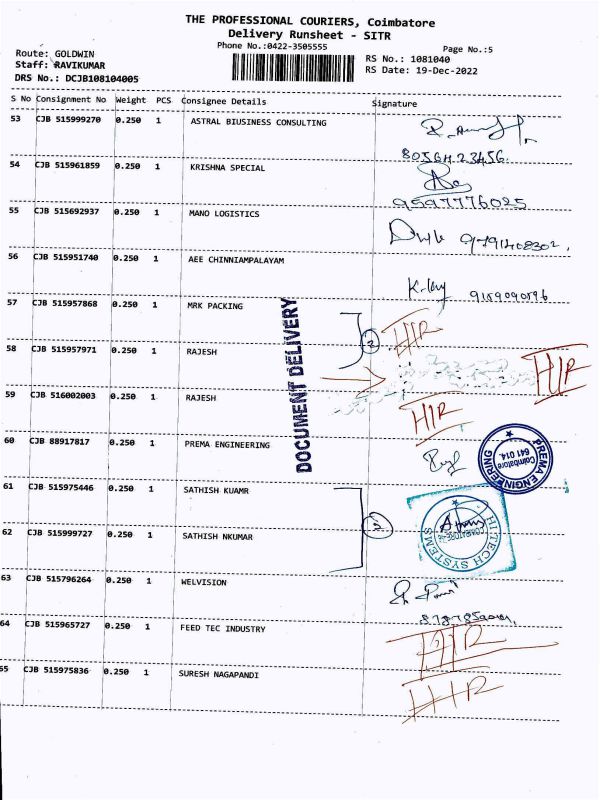 THE PROFESSIONAL COURIERS, Coimbatore
Delivery Runsheet - SITR
Phone No.:0422-3505555
Page No.:5
Route: GOLDWIN
Staff: RAVIKUMAR
DRS No.: DCJB108104005
RS No.: 1081040
RS Date: 19-Dec-2022
S No Consignment No Weight PCS Consignee Details Signature
53 CJB 515999270 0.250 1 ASTRAL BIUSINESS CONSULTING
54 CJB 515961859 0.250 1 KRISHNA SPECIAL
9597776025
55 CJB 515692937 0.250 1 MANO LOGISTICS
56 CJB 515951740 0.250 1 AEE CHINNIAMPALAYAM
57 CJB 515957868 0.250 1 MRK PACKING
HIR
58 CJB 515957971 0.250 1 RAJESH
HIR
59 CJB 516002003 0.250 1 RAJESH
HIR
DOCUMENT DELIVERY
60 CJB 88917817 0.250 1 PREMA ENGINEERING
PREMA ENGINEERING
Coimbatore
641 014.
61 CJB 515975446 0.250 1 SATHISH KUAMR
62 CJB 515999727 0.250 1 SATHISH NKUMAR
HI-TECH SYSTEMS
63 CJB 515796264 0.250 1 WELVISION
64 CJB 515965727 0.250 1 FEED TEC INDUSTRY
HIR
65 CJB 515975836 0.250 1 SURESH NAGAPANDI
HIR